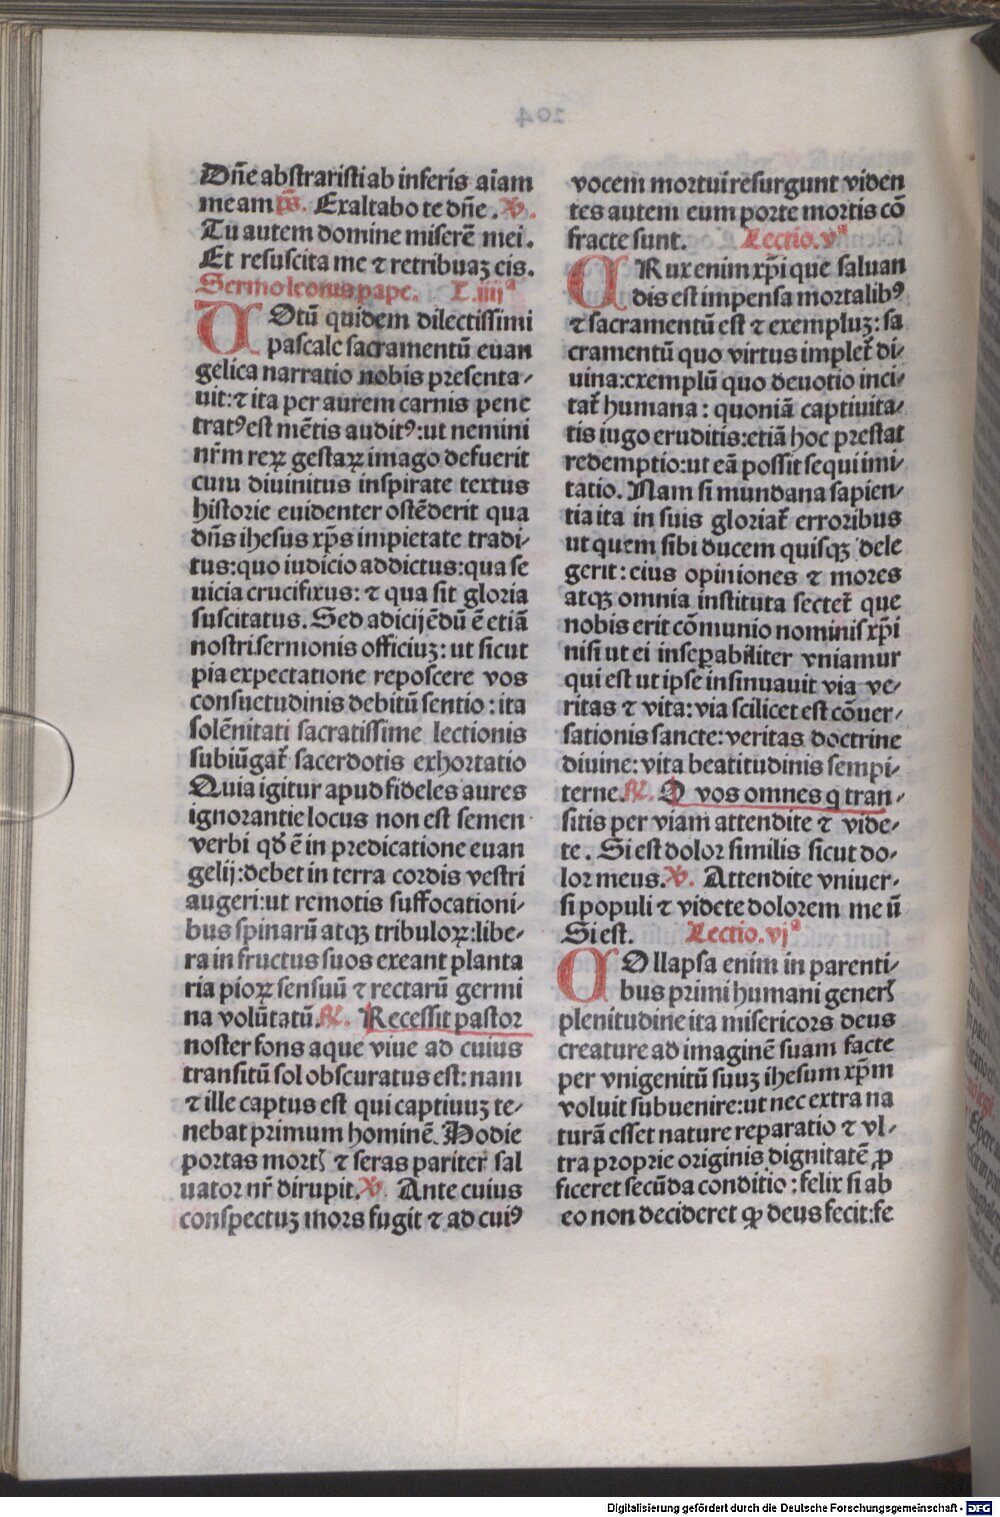 Dn̄e abstraristi ab inferis aīam
meam p̄s. Exaltabo te dn̄e. V.
Tu autem domine miserē mei.
Et resuscita me ⁊ retribuaʒ eis.
Sermo leonis pape. L.iiijª
TOtū quidem dilectissimi
pascale sacramentū euan
gelica narratio nobis presenta⸗
uit: ⁊ ita per aurem carnis pene
tratꝰ est mētis auditꝰ: ut nemini
nr̄m reꝝ gestaꝝ imago defuerit
cum diuinitus inspirate textus
historie euidenter ostēderit qua
dn̄s ihesus xp̄s impietate tradi⸗
tus: quo iudicio addictus: qua se
uicia crucifixus: ⁊ qua sit gloria
suscitatus. Sed adicijēdū ē etiā
nostri sermonis officiuʒ: ut sicut
pia expectatione reposcere vos
consuetudinis debitū sentio: ita
solēnitati sacratissime lectionis
subiūgat᷑ sacerdotis exhortatio
Quia igitur apud fideles aures
ignorantie locus non est semen
verbi qđ ē in predicatione euan
gelij: debet in terra cordis vestri
augeri: ut remotis suffocationi⸗
bus spinarū atqꝫ tribuloꝝ: libe⸗
ra in fructus suos exeant planta
ria pioꝝ sensuū ⁊ rectarū germi
na volūtatū. R. Recessit pastor
noster fons aque viue ad cuius
transitū sol obscuratus est: nam
⁊ ille captus est qui captiuuʒ te⸗
nebat primum hominē. Hodie
portas mortꝭ ⁊ seras pariter sal
uator nr̄ dirupit. V. Ante cuius
conspectuʒ mors fugit ⁊ ad cuiꝰ
vocem mortui resurgunt viden
tes autem eum porte mortis cō
fracte sunt. Lectio.vª
CRux enim xp̄i que saluan
dis est impensa mortalibꝰ
⁊ sacramentū est ⁊ exempluʒ: sa
cramentū quo virtus implet᷑ di⸗
uina: exemplū quo deuotio inci⸗
tat᷑ humana: quoniā captiuita⸗
tis iugo eruditis: etiā hoc prestat
redemptio: ut eā possit sequi imi⸗
tatio. Nam si mundana sapien⸗
tia ita in suis gloriat᷑ erroribus
ut quem sibi ducem quisqꝫ dele
gerit: eius opiniones ⁊ mores
atqꝫ omnia instituta sectet᷑ que
nobis erit cōmunio nominis xp̄i
nisi ut ei inseꝑabiliter vniamur
qui est ut ipse insinuauit via ve⸗
ritas ⁊ vita: via scilicet est cōuer⸗
sationis sancte: veritas doctrine
diuine: vita beatitudinis sempi⸗
terne. R. O vos omnes q tran⸗
sitis per viam attendite ⁊ vide⸗
te. Si est dolor similis sicut do⸗
lor meus. V. Attendite vniuer⸗
si populi ⁊ videte dolorem me ū
Si est. Lectio.vjª
COllapsa enim in parenti⸗
bus primi humani generꝭ
plenitudine ita misericors deus
creature ad imaginē suam facte
per vnigenitū suuʒ ihesum xp̄m
voluit subuenire: ut nec extra na
turā esset nature reparatio ⁊ vl⸗
tra proprie originis dignitatē ꝓ
ficeret secūda conditio: felix si ab
eo non decideret ꝙ deus fecit: fe
Digitalisierung gefördert durch die Deutsche Forschungsgemeinschaft - DFG